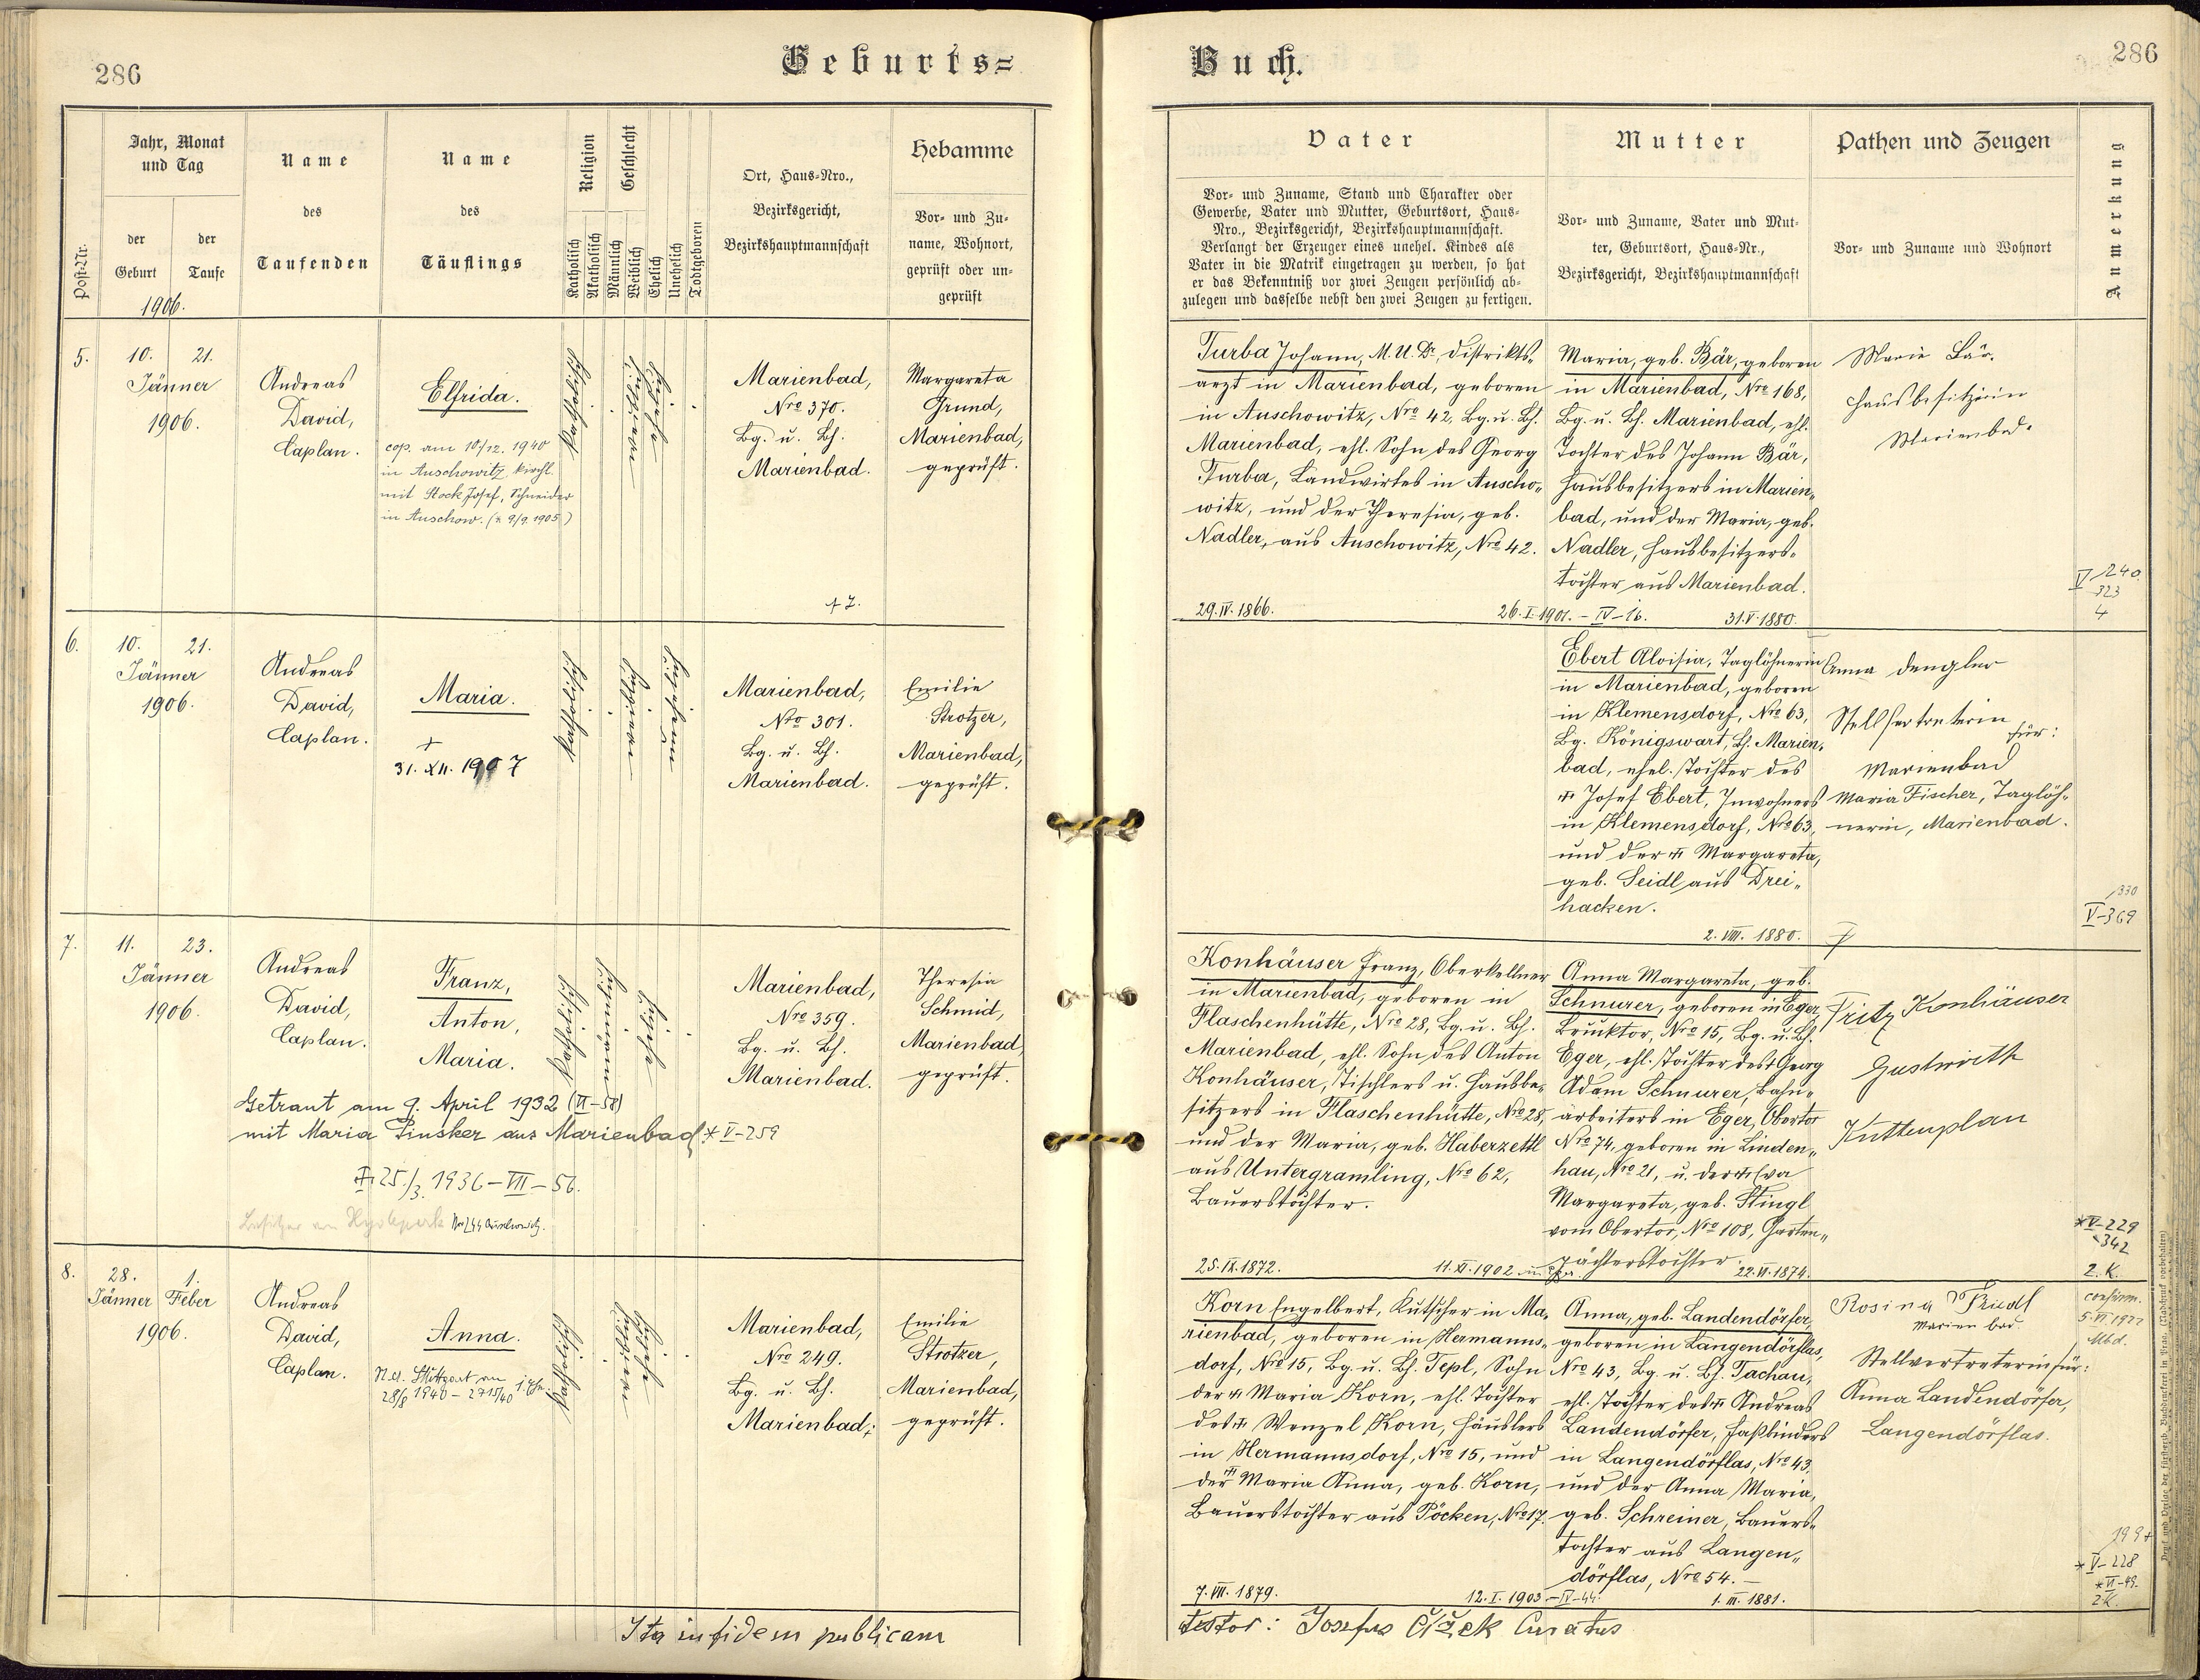 286
Geburts=
Post-Nr.
Jahr, Monat
und Tag
der
Geburt
der
Taufe
1906.
Name
des
Taufenden
Name
des
Täuflings
Religion
Katholisch
Akatholisch
Geschlecht
Männlich
Weiblich
Ehelich
Unehelich
Todtgeboren
Ort, Haus-Nro.,
Bezirksgericht,
Bezirkshauptmannschaft
Hebamme
Vor- und Zu-
name, Wohnort,
geprüft oder un-
geprüft
5.
10. 21.
Jänner
1906.
Andreas
David,
Caplan.
Elfrida.
cop. am 10./12. 1940
in Auschowitz, kirchl.
mit Stock Josef, Schneider
in Auschow. (* 9/9. 1905)
Katholisch
Weiblich
Eheliche
Marienbad,
Nro 370.
Bg. u. Bh.
Marienbad.
Margareta
Grund,
Marienbad,
geprüft.
6.
10. 21.
Jänner
1906.
Andreas
David,
Caplan.
Maria.
+
31. XII. 1907
Katholisch
Marienbad,
Nro 301.
Bg. u. Bh.
Marienbad.
Emilie
Strotzer,
Marienbad,
geprüft.
7.
11. 23.
Jänner
1906.
Andreas
David,
Caplan.
Franz,
Anton,
Maria.
Getraut am 9. April 1932 (VI-58)
mit Maria Pinsker aus Marienbad * V-259
25./3. 1936 – VII – 56.
Katholisch
Marienbad,
Nro 359.
Bg. u. Bh.
Marienbad.
Theresia
Schmid,
Marienbad,
geprüft.
8.
28. 1.
Jänner Feber
1906.
Andreas
David,
Caplan.
Anna.
Katholisch
Marienbad,
Nro 249.
Bg. u. Bh.
Marienbad;
Emilie
Strotzer,
Marienbad,
geprüft.
Ita in fidem publicam
Buch.
286
Vater
Vor- und Zuname, Stand und Charakter oder
Gewerbe, Vater und Mutter, Geburtsort, Haus-
Nro., Bezirksgericht, Bezirkshauptmannschaft.
Verlangt der Erzeuger eines unehel. Kindes als
Vater in die Matrik eingetragen zu werden, so hat
er das Bekenntniß vor zwei Zeugen persönlich ab-
zulegen und dasselbe nebst den zwei Zeugen zu fertigen.
Mutter
Vor- und Zuname, Vater und Mut-
ter, Geburtsort, Haus-Nr.,
Bezirksgericht, Bezirkshauptmannschaft
Pathen und Zeugen
Vor- und Zuname und Wohnort
Anmerkung
Turba Johann, M.U.Dr, Distrikts-
arzt in Marienbad, geboren
in Auschowitz, Nro 42, Bg. u. Bh.
Marienbad, ehl. Sohn des Georg
Turba, Landwirtes in Auscho-
witz, und der Theresia, geb.
Nadler, aus Auschowitz, Nro 42.
29. IV. 1866.
26. I. 1901. – IV – 16.
Maria, geb. Bär, geboren
in Marienbad, Nro 168,
Bg. u. Bh. Marienbad, ehl.
Tochter des Johann Bär,
Hausbesitzers in Marien-
bad, und der Maria, geb.
Nadler, Hausbesitzers-
tochter aus Marienbad.
31. V. 1880.
Marie Bär.
Hausbesitzerin
Marienbad.
V 240
323
4
Ebert Aloisia, Taglöhnerin
in Marienbad, geboren
in Klemensdorf, Nro 63,
Bg. Königswart, Bh. Marien-
bad, ehel. Tochter des
† Josef Ebert, Inwohners
in Klemensdorf, Nro 63,
und der † Margareta,
geb. Seidl aus Drei-
hacken.
2. VIII. 1880.
Anna Dengler
Stellvertreterin
für:
Marienbad
Maria Fischer, Taglöh-
nerin, Marienbad.
330
V-369
Konhäuser Franz, Oberkellner
in Marienbad, geboren in
Flaschenhütte, Nro 28, Bg. u. Bh.
Marienbad, ehl. Sohn des Anton
Konhäuser, Tischlers u. Hausbe-
sitzers in Flaschenhütte, Nro 28,
und der Maria, geb. Haberzettl
aus Untergramling, Nro 62,
Bauerstochter.
25. IX. 1872.
11. XI. 1902
Anna Margareta, geb.
Schnurer, geboren in Eger,
Brucktor, Nro 15, Bg. u. Bh.
Eger, ehl. Tochter des Georg
Adam Schnurer, Bahn-
arbeiters in Eger, Obertor
Nro 74, geboren in Linden-
hau, Nro 21, u. der † Eva
Margareta, geb. Stingl
vom Obertor, Nro 108, Garten-
pächterstochter.
22. VI. 1874.
Fritz Konhäuser
Gastwirth
Kuttenplan
*V-229
342
2. K.
Korn Engelbert, Kutscher in Ma-
rienbad, geboren in Hermanns-
dorf, Nro 15, Bg. u. Bh. Tepl, Sohn
der † Maria Korn, ehl. Tochter
des † Wenzel Korn, Häuslers
in Hermannsdorf, Nro 15, und
der † Maria Anna, geb. Korn,
Bauerstochter aus Pöcken, Nro 17.
7. VII. 1879.
12. I. 1903 – IV – 44.
Anna, geb. Landendörfer,
geboren in Langendörflas,
Nro 43, Bg. u. Bh. Tachau,
ehl. Tochter des † Andreas
Landendörfer, Faßbinders
in Langendörflas, Nro 43,
und der Anna Maria,
geb. Schreiner, Bauers-
tochter aus Langen-
dörflas, Nro 54. –
1. III. 1881.
Rosina Friedl
Marienbad.
Stellvertreterin für:
Anna Landendörfer,
Langendörflas.
confirm.
Mbd.
199+
* V-228
* VI-49.
2K.
testor: Josefus Čížek Curatus